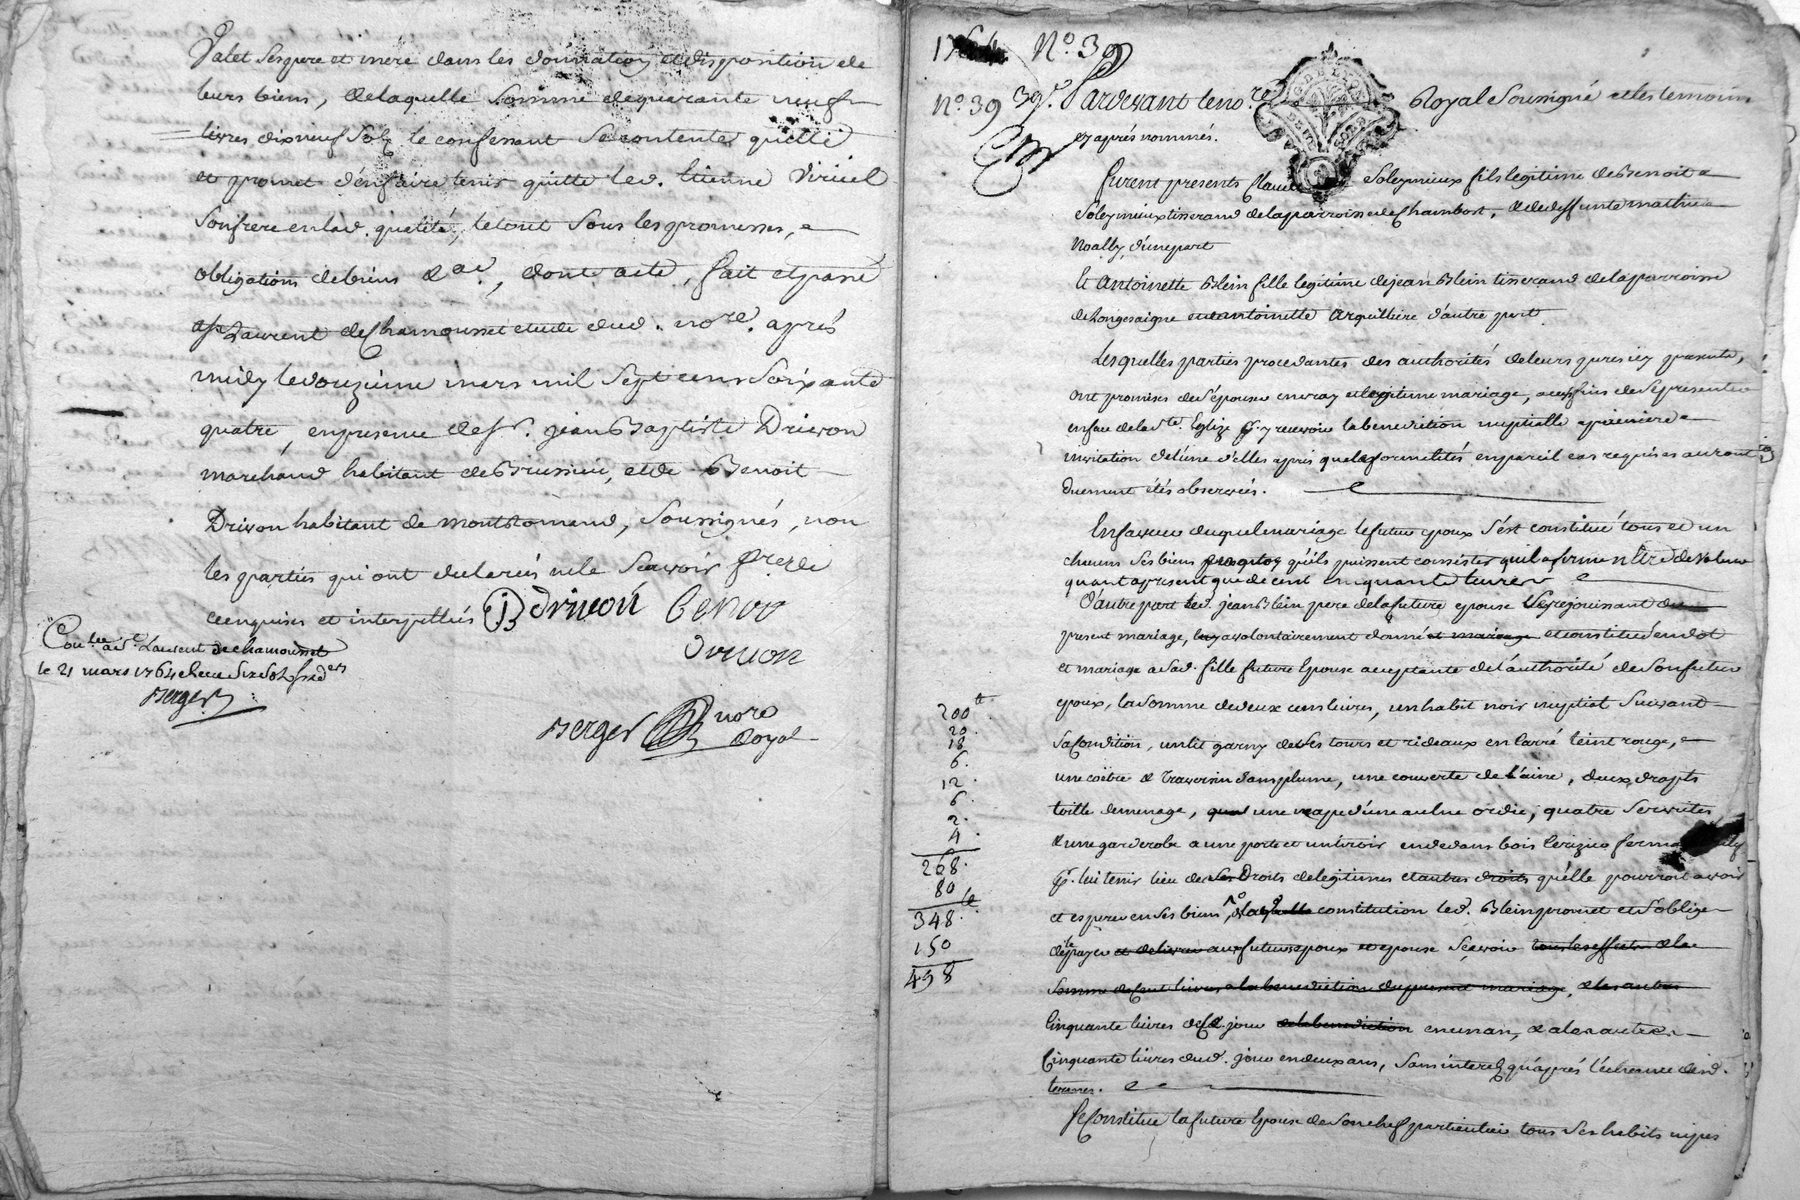 Valet ses pere et mere dans les donnation et disposition de
leurs biens, de laquelle somme de quarante neuf
livres dix neuf sols le confessent se contente quitte
et promet d'en faire tenir quitte led. Etienne Viricel
son frere en lad. qualité, le tout sous les promesses,
obligations de biens &ac., dont acte, fait et passé
a St Laurent de Chamousset etude dud. nore. aprés
midy le douzieme mars mil sept cens soixante
quatre, en presence de Sr. jean Baptiste Drivon
marchand habitant de Brussieu, et de Benoit
Drivon habitant de montromand, soussignés, non
les parties qui ont declarées ne le scavoir fre. de
ce enquises et interpellés JB drivon benoi
drivon
Conlee. a St. Laurent de chamousset
le 21 mars 1764 Recu six sols six ders
Berger
Berger nore
Royal
1764 No. 39
No. 39 39e. Pardevant le nore Royal soussigné et les temoins
cy aprés nommés.
furent presents Soleymieux fils legitime de Benoit
Soleymieux tisserand de la parroisse de Chambost, & de deffunte mathie
Noally, d'une part
Et Antoinette Blein fille legitime de jean Blein tisserand de la parroisse
de Longesaigne et d'antoinette Arquilliere d'autre part.
Lesquelles parties procedantes des authorités de leurs peres icy presents,
ont promises de s'épouser en vray et legitime mariage, aux fins de se presenter
en face de la Ste. Eglize p. y recevoir la benediction nuptialle a premiere
invitation de l'une d'elles aprés que les formalités en pareil cas requises auront
duement étés observées.
En faveur duquel mariage le futur epoux s'est constitué tous et un
chacuns ses biens qu'ils puissent consister qu'il afirme n'être de valeur
quant apresent que de cent cinquante livres
D'autre part led. jean Blein pere de la future epouse se rejouissant du
present mariage, luy a volontairement donné et mariage et constitué en dot
et mariage a sad. fille future Epouse acceptante de l'authorité de son futur
epoux, la somme de deux cens livres, un habit noir nuptial suivant
sa Condition, un lit garny de ses tours et rideaux en Carré teint rouge,
une coëtre & traversin dans plume, une couverte de l'aine, deux drapts
toille de menage, une nape d'une aulne ordie, quatre serviettes
& une garderobe a une porte et un tiroir en dedans bois Cerizier fermant
p. lui tenir lieu de ses Droits de legitimes et autres droits qu'elle pourroit avoir
et esperer en ses biens, constitution led. Blein promet et s'oblige
de payer et delivrer aux futurs epoux et epouse scavoir tous les effets & la
somme de Cent livres a la benediction du present mariage, & les autres
Cinquante livres de ce jour de la benediction en un an, & les autres
Cinquante livres dud. jour en deux ans, sans interet qu'aprés l'echeance desd.
termes.
Se Constitue la future Epouse de son chef particulier tous ses habits nipes
200
20
18
6.
12
6.
2.
4.
268.
80
348.
150
498